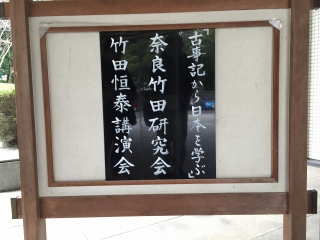 「古事記から日本を学ぶ」
奈良竹田研究会
竹田恒泰講演会